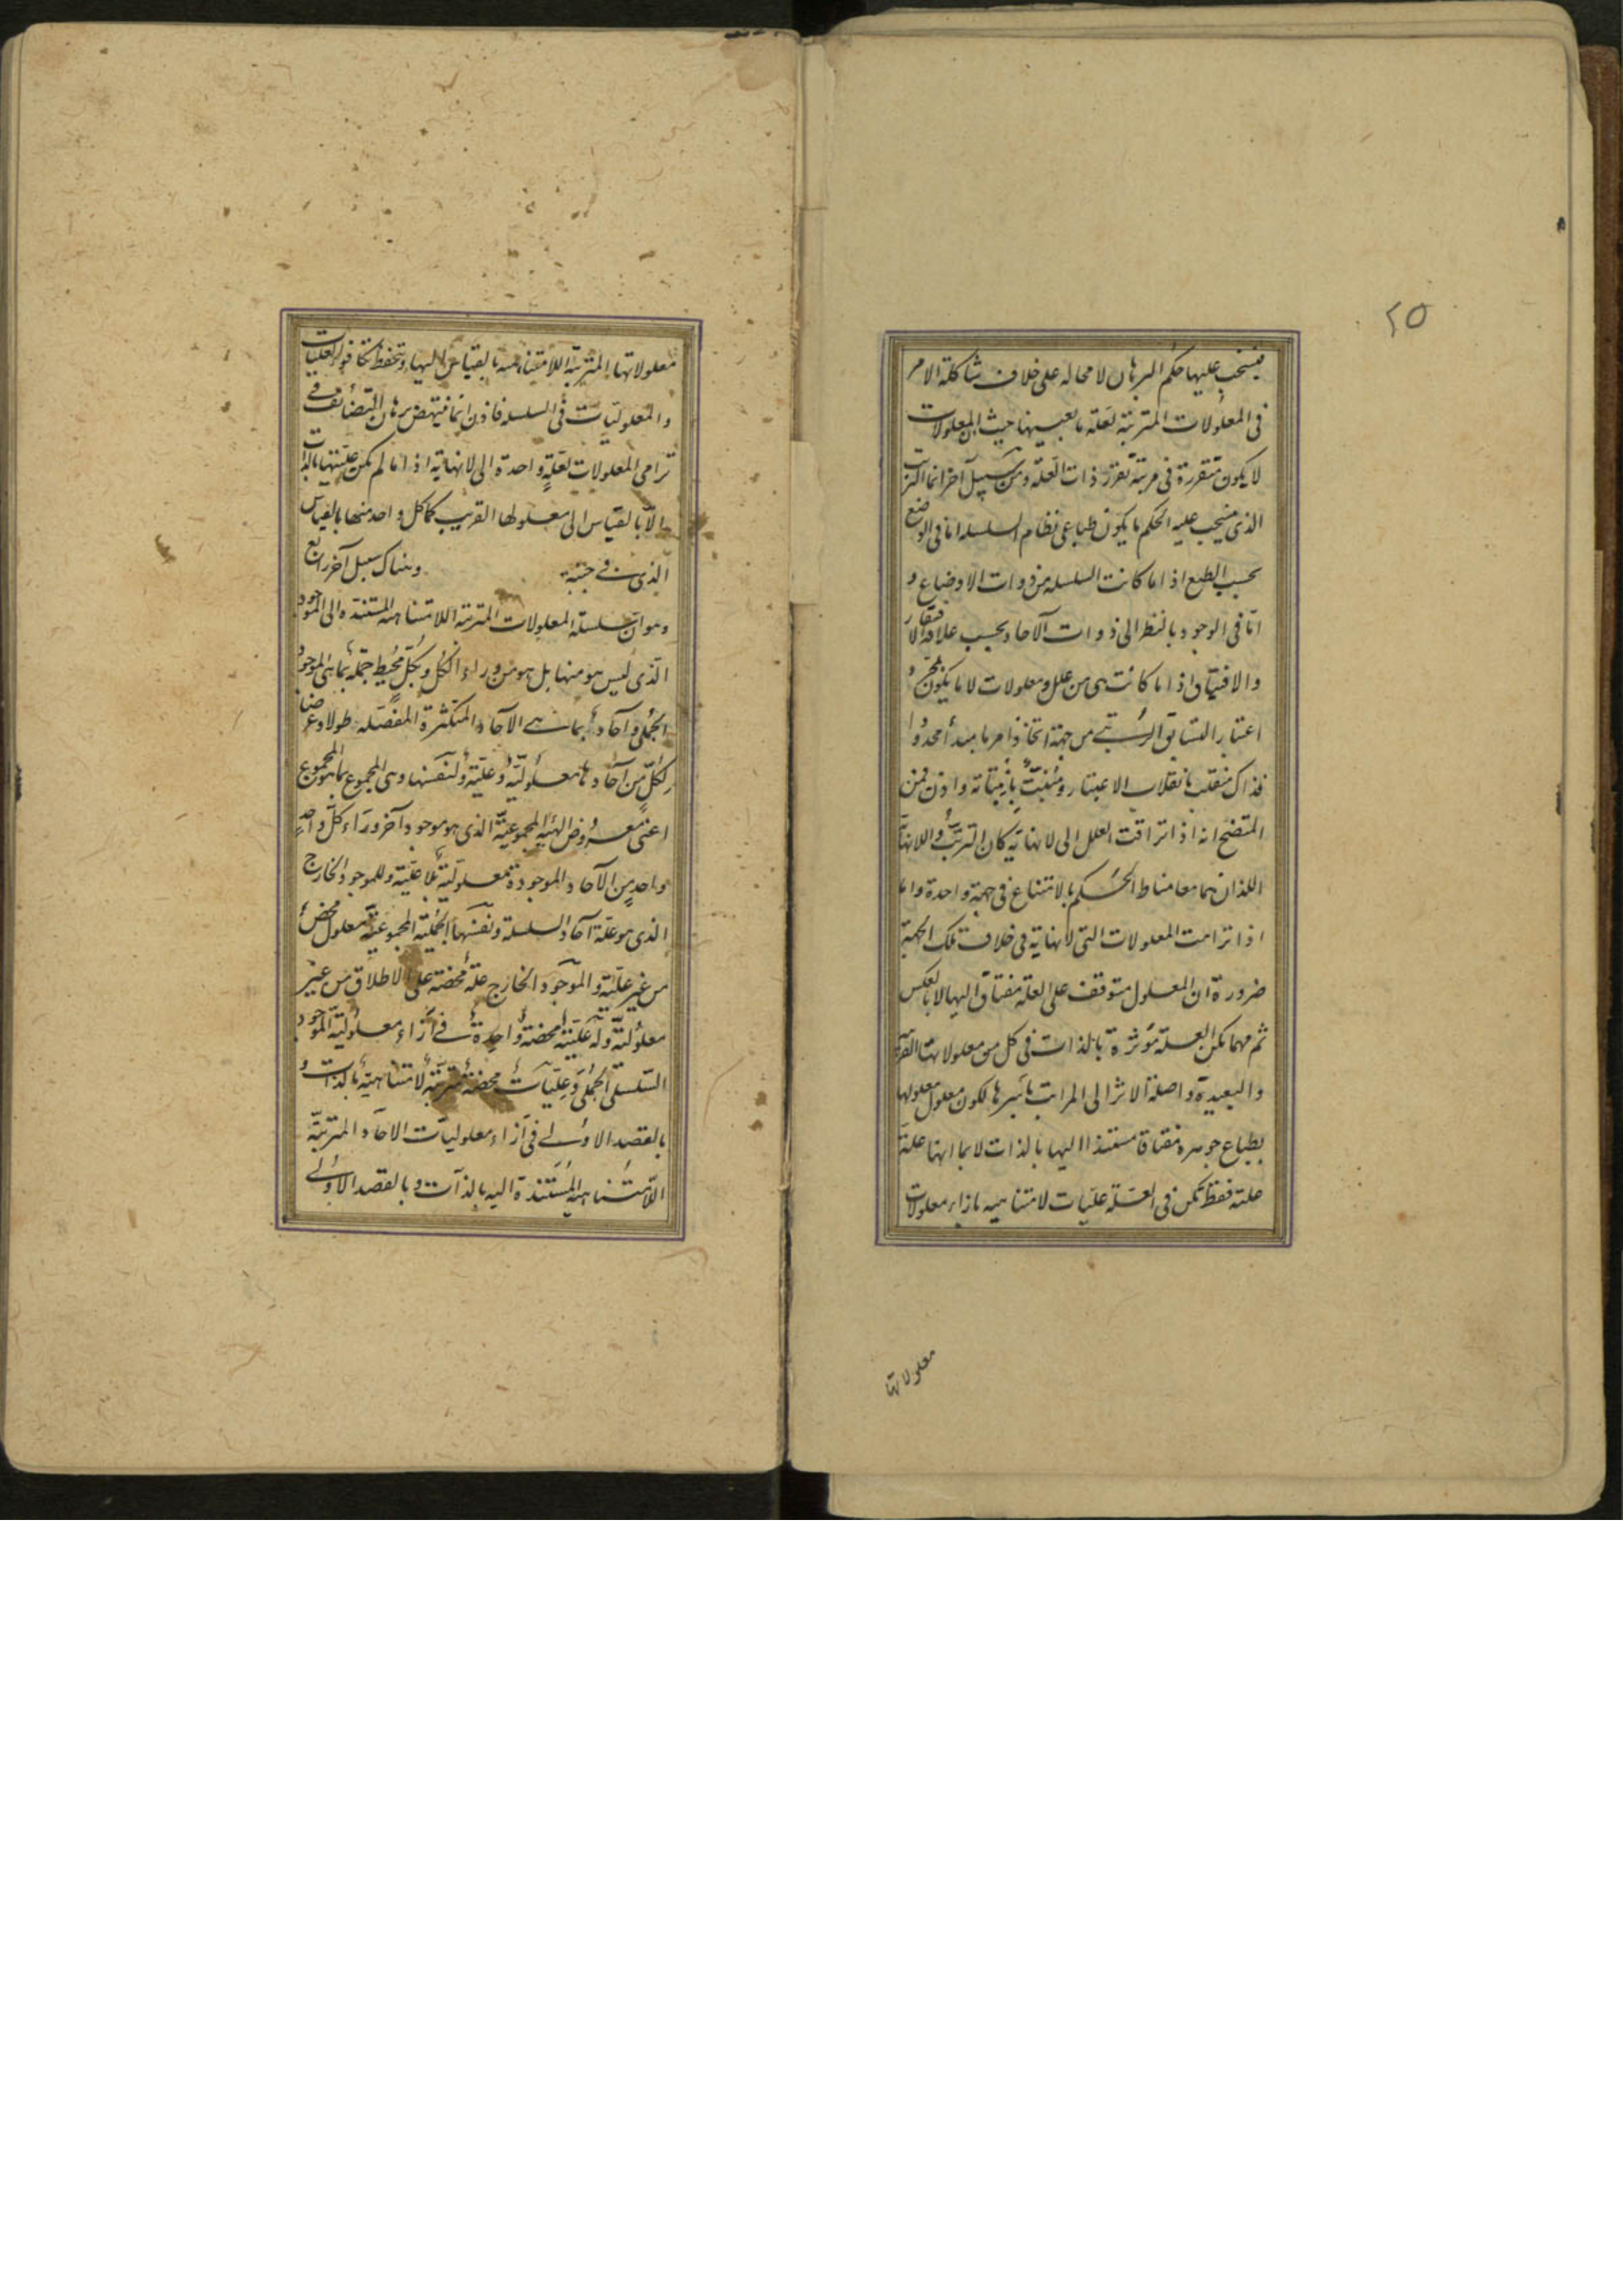 ٢٥
فينسحب عليها حكم البرهان لا محاله على خلاف شاكلة الامر
فى المعلولات المترتبة لعلة ما بعينها حيث ان المعلولات
لا يكون متقررة فى مرتبة تقرر ذات العلة ومن سبيل آخر انما الترتب
الذى ينسحب عليه الحكم ما يكون طباعى نظام السلسله اما فى الوضع
بحسب الطبع اذا ما كانت السلسله من ذوات الاوضاع و
اما فى الوجود بالنظر الى ذوات الآحاد بحسب علاقة الافتقار
والافتياق اذا ما كانت هى من علل ومعلولات لا ما يكون بمجرد
اعتبار التسابق الرتبى من جهة اتخاذ امر ما مبدأ محدودا
فذاك منقلب بانقلاب الاعتبار ومنبت بانبتاته واذن فمن
المتضح انه اذا تراقت العلل الى لا نهاية كان الترتب واللانهاية
اللذان هما معا مناط الحكم بالامتناع فى جهة واحدة واما
اذا ترامت المعلولات التى لا نهاية فى خلاف تلك الجهة
ضرورة ان المعلول متوقف على العلة مفتاق اليها لا بالعكس
ثم مهما تكن العلة مؤثرة بالذات فى كل من معلولاتها القريبة
والبعيدة واصلة الاثر الى المراتب باسرها لكون معلول معلولها
بطباع جوهره مفتاقا مستندا اليها بالذات لا بما انها علة
علته فقط تكن فى العلة عليات لا متناهيه بازاء معلولات
معلولاتها
معلولاتها المترتبة اللامتناهيه بالقياس اليها وتحفظ تكافؤ العليات
والمعلوليات فى السلسله فاذن انما ينتهض برهان التضائف فى
ترامى المعلولات لعلة واحدة الى لا نهاية اذا ما لم تكن عليتها بالذات
الا بالقياس الى معلولها القريب كما كل واحد منها بالقياس
الذى فى جنبته وهناك سبيل آخر رابع
وهو ان سلسلة المعلولات المترتبة اللامتناهيه المستندة الى الموجود
الذى ليس هو منها بل هو من وراء الكل وبكل محيط جملة بما هى الموجود
الجملى وآحاد بما هى الآحاد المتكثرة المفصله طولا وعرضا
لكل من آحادها معلولية وعلية ولنفسها وهى المجموع بما هو المجموع
اعنى معروض الهيئة المجموعية الذى هو موجود آخر وراء كل واحد
واحد من الآحاد الموجودة معلولية بلا علية وللموجود الخارج
الذى هو علة آحاد السلسلة ونفسها الجملية المجموعية معلول محض
من غير علية والموجود الخارج علة محضة على الاطلاق من غير
معلولية وله علية محضة واحدة فى ازاء معلولية الموجود
السلسلى الجملى وعليات محضة مترتبة لا متناهية بالذات و
بالقصد الاولى فى ازاء معلوليات الآحاد المترتبة
اللامتناهية المستندة اليه بالذات وبالقصد الاولى